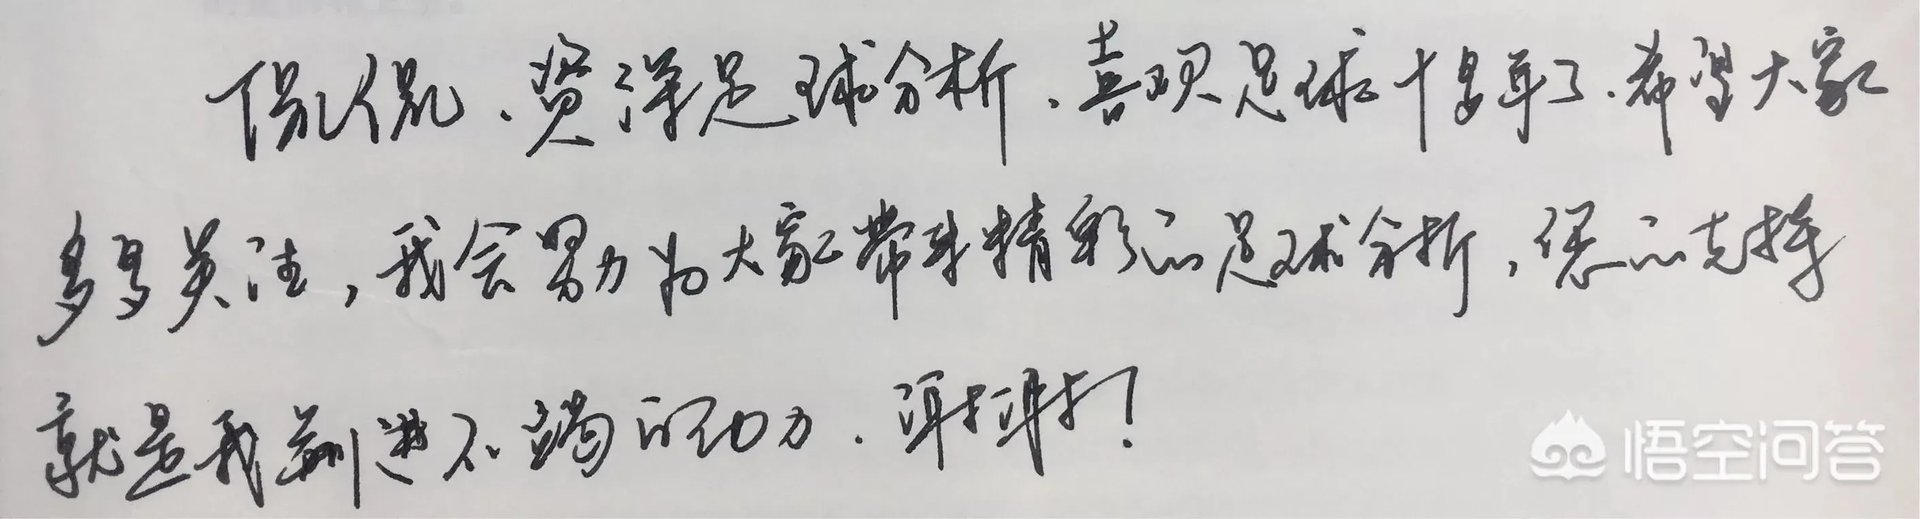 侃侃、资深足球分析、喜欢足球十多年了、希望大家
多多关注,我会努力为大家带来精彩的足球分析,您的支持
就是我前进不竭的动力、谢谢!
悟空问答